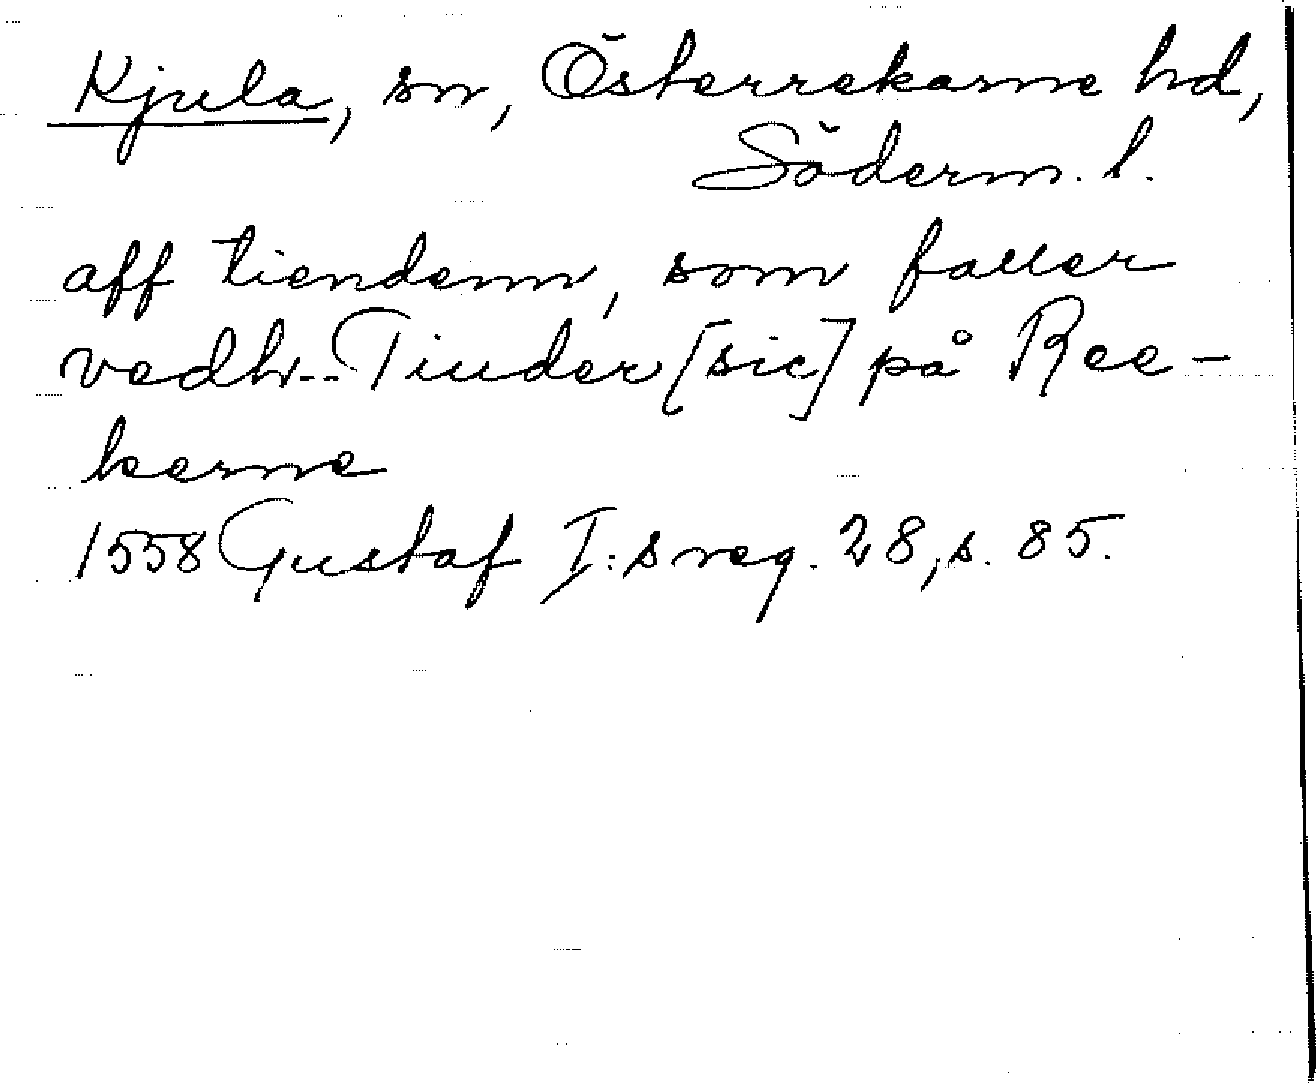 Kjula, sn, Österrekarne hd,
Söderm. l.
aff tiendenn, som faller
vedh... Tiuder [sic] på Ree-
kerne
1558 Gustaf I:s reg. 28, s. 85.